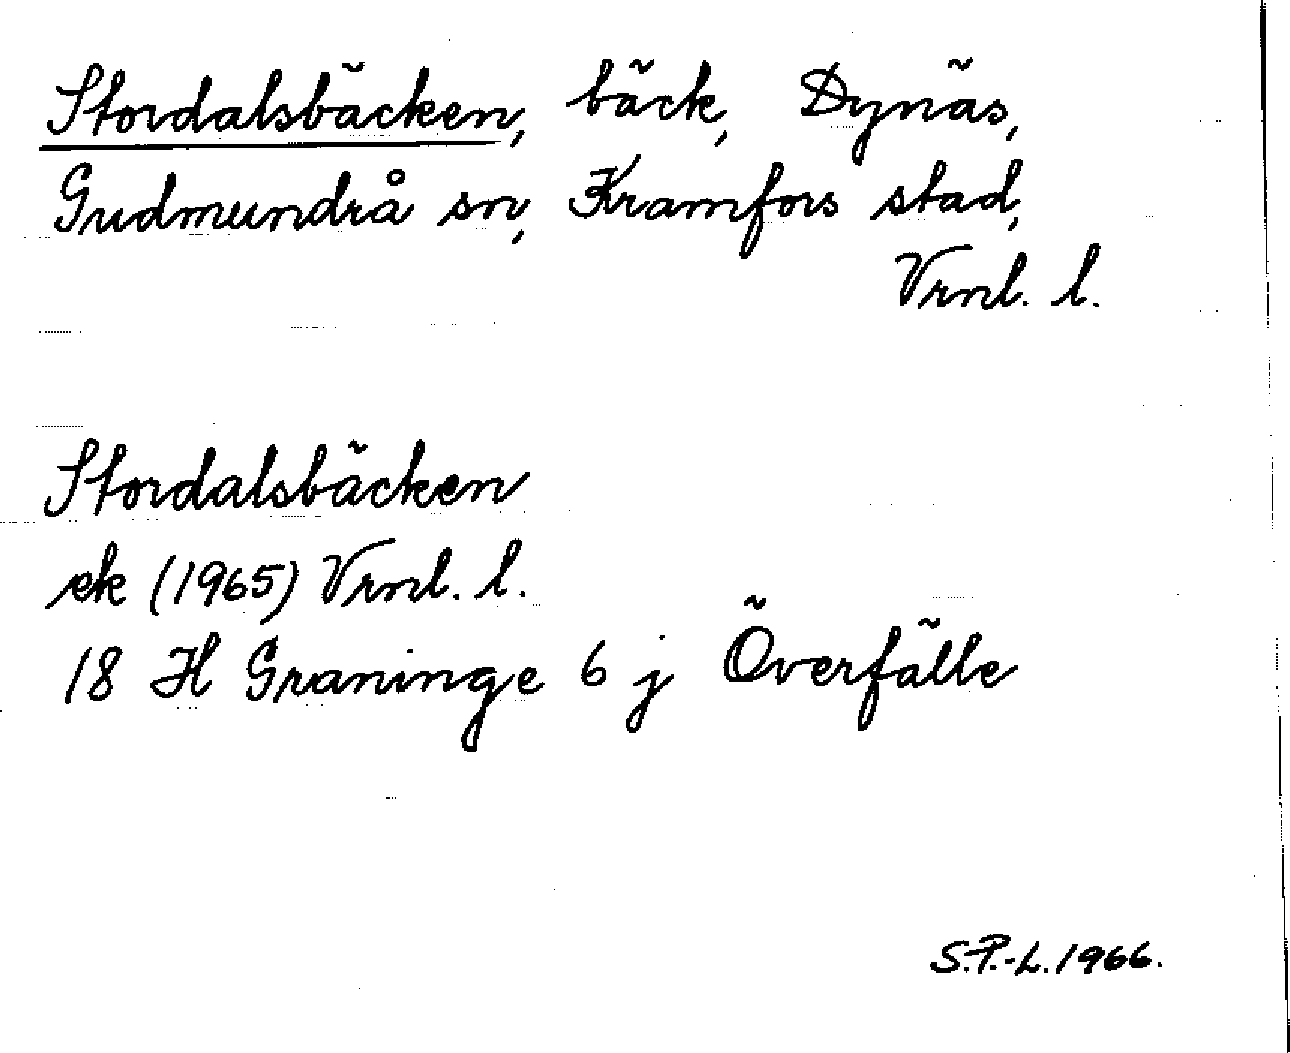 Stordalsbäcken, bäck, Dynäs,
Gudmundrå sn, Kramfors stad,
Vrnl. l.
Stordalsbäcken
ek (1965) Vrnl. l.
18 H Graninge 6 j Överfälle
S.P.-L. 1966.